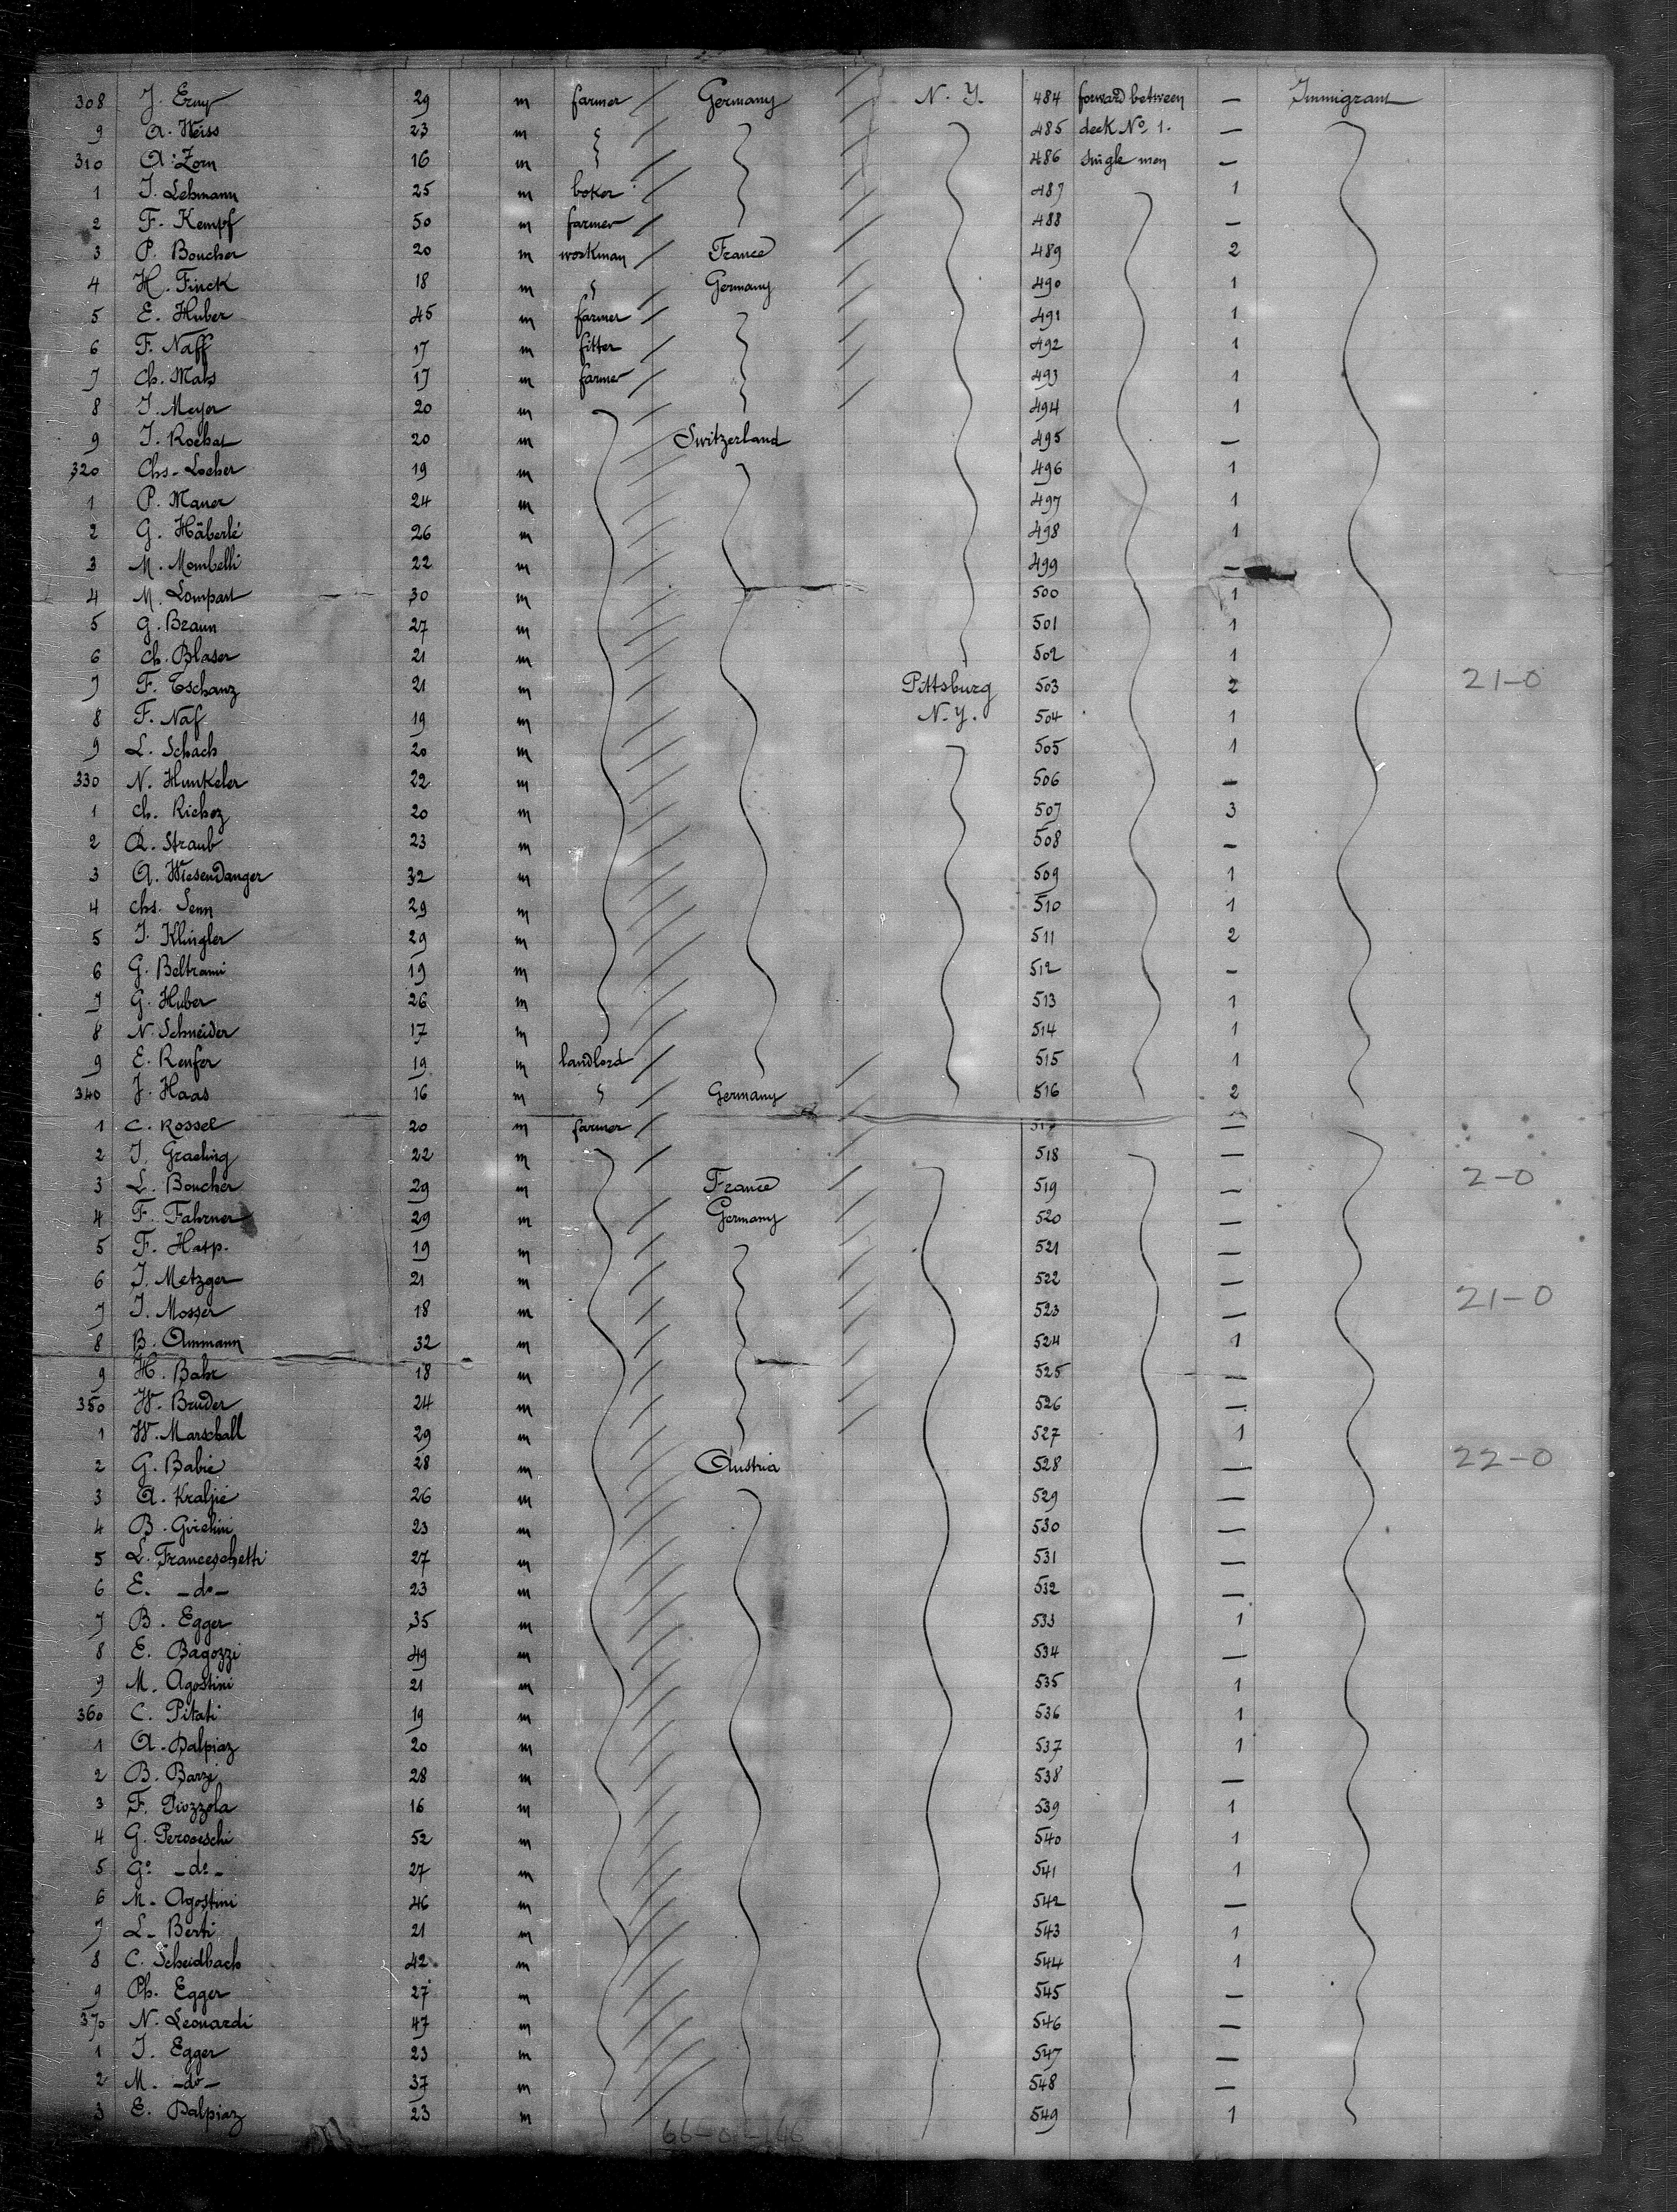 308 J. Erny 29 m farmer Germany N. Y. 484 forward between — Immigrant
9 A. Weiss 23 m 485 deck No. 1. —
310 A. Zorn 16 m 486 single men —
1 J. Lehmann 25 m boker 487 1
2 F. Kempf 50 m farmer 488 —
3 P. Boucher 20 m workman France 489 2
4 H. Finck 18 m Germany 490 1
5 E. Huber 45 m farmer 491 1
6 F. Naff 17 m fitter 492 1
7 Ch. Mats 17 m farmer 493 1
8 J. Meyer 20 m 494 1
9 J. Rochat 20 m Switzerland 495 —
320 Chs. Locher 19 m 496 1
1 P. Maner 24 m 497 1
2 G. Häberlé 26 m 498 1
3 M. Mombelli 22 m 499 —
4 M. Lompart 30 m 500 1
5 G. Braun 27 m 501 1
6 Ch. Blaser 21 m 502 1
7 F. Tschanz 21 m Pittsburg 503 2 21-0
8 F. Naf 19 m N. Y. 504 1
9 L. Schach 20 m 505 1
330 N. Hunkeler 22 m 506 —
1 Ch. Richoz 20 m 507 3
2 A. Straub 23 m 508 —
3 A. Wiesendanger 32 m 509 1
4 Chs. Senn 29 m 510 1
5 J. Klingler 29 m 511 2
6 G. Beltrami 19 m 512 —
7 G. Huber 26 m 513 1
8 N. Schneider 17 m 514 1
9 E. Renfer 19 m landlord 515 1
340 J. Haas 16 m Germany 516 2
1 C. Rossel 20 m farmer —
2 J. Graeling 22 m 518 —
3 L. Boucher 29 m France 519 — 2-0
4 F. Fahrner 29 m Germany 520 —
5 F. Harp. 19 m 521 —
6 J. Metzger 21 m 522 —
7 J. Mosser 18 m 523 — 21-0
8 B. Ammann 32 m 524 1
9 H. Bahr 18 m 525 —
350 W. Bruder 24 m 526 —
1 W. Marschall 29 m 527 1
2 G. Babic 28 m Austria 528 — 22-0
3 A. Kraljié 26 m 529 —
4 B. 23 m 530 —
5 L. Franceschetti 27 m 531 —
6 E. -do- 23 m 532 —
7 B. Egger 35 m 533 1
8 E. Bagozzi 49 m 534 —
9 M. Agostini 21 m 535 1
360 C. Pitati 19 m 536 1
1 A. Dalpiaz 20 m 537 1
2 B. Barzi 28 m 538 —
3 F. Piozzola 16 m 539 1
4 G. 52 m 540 1
5 Go -do- 27 m 541 1
6 M. Agostini 46 m 542 —
7 L. Berti 21 m 543 1
8 C. Scheidbach 42 m 544 1
9 Ph. Egger 27 m 545 —
370 N. Leonardi 47 m 546 —
1 J. Egger 23 m 547 —
2 M. -do- 37 m 548 —
3 E. Dalpiaz 23 m 549 1